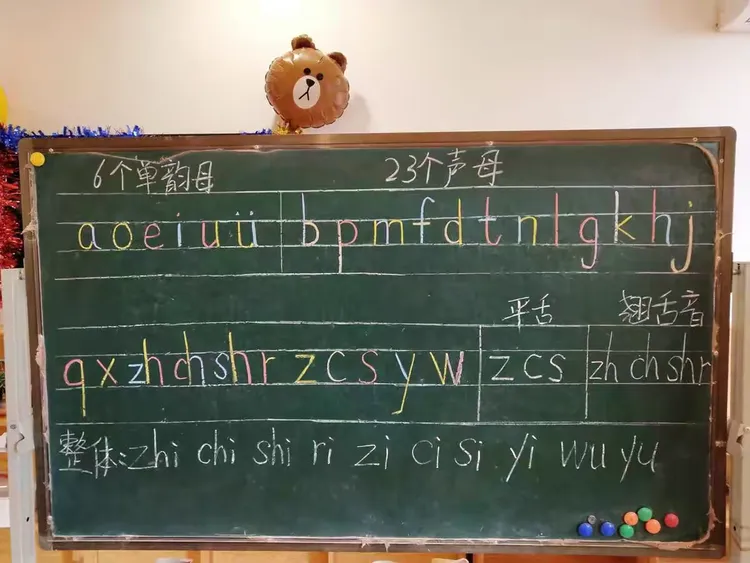 6个单韵母 23个声母
a o e i u ü b p m f d t n l g k h j
平舌 翘舌音
q x zh ch sh r z c s y w z c s zh ch sh r
整体:zhi chi shi ri zi ci si yi wu yu